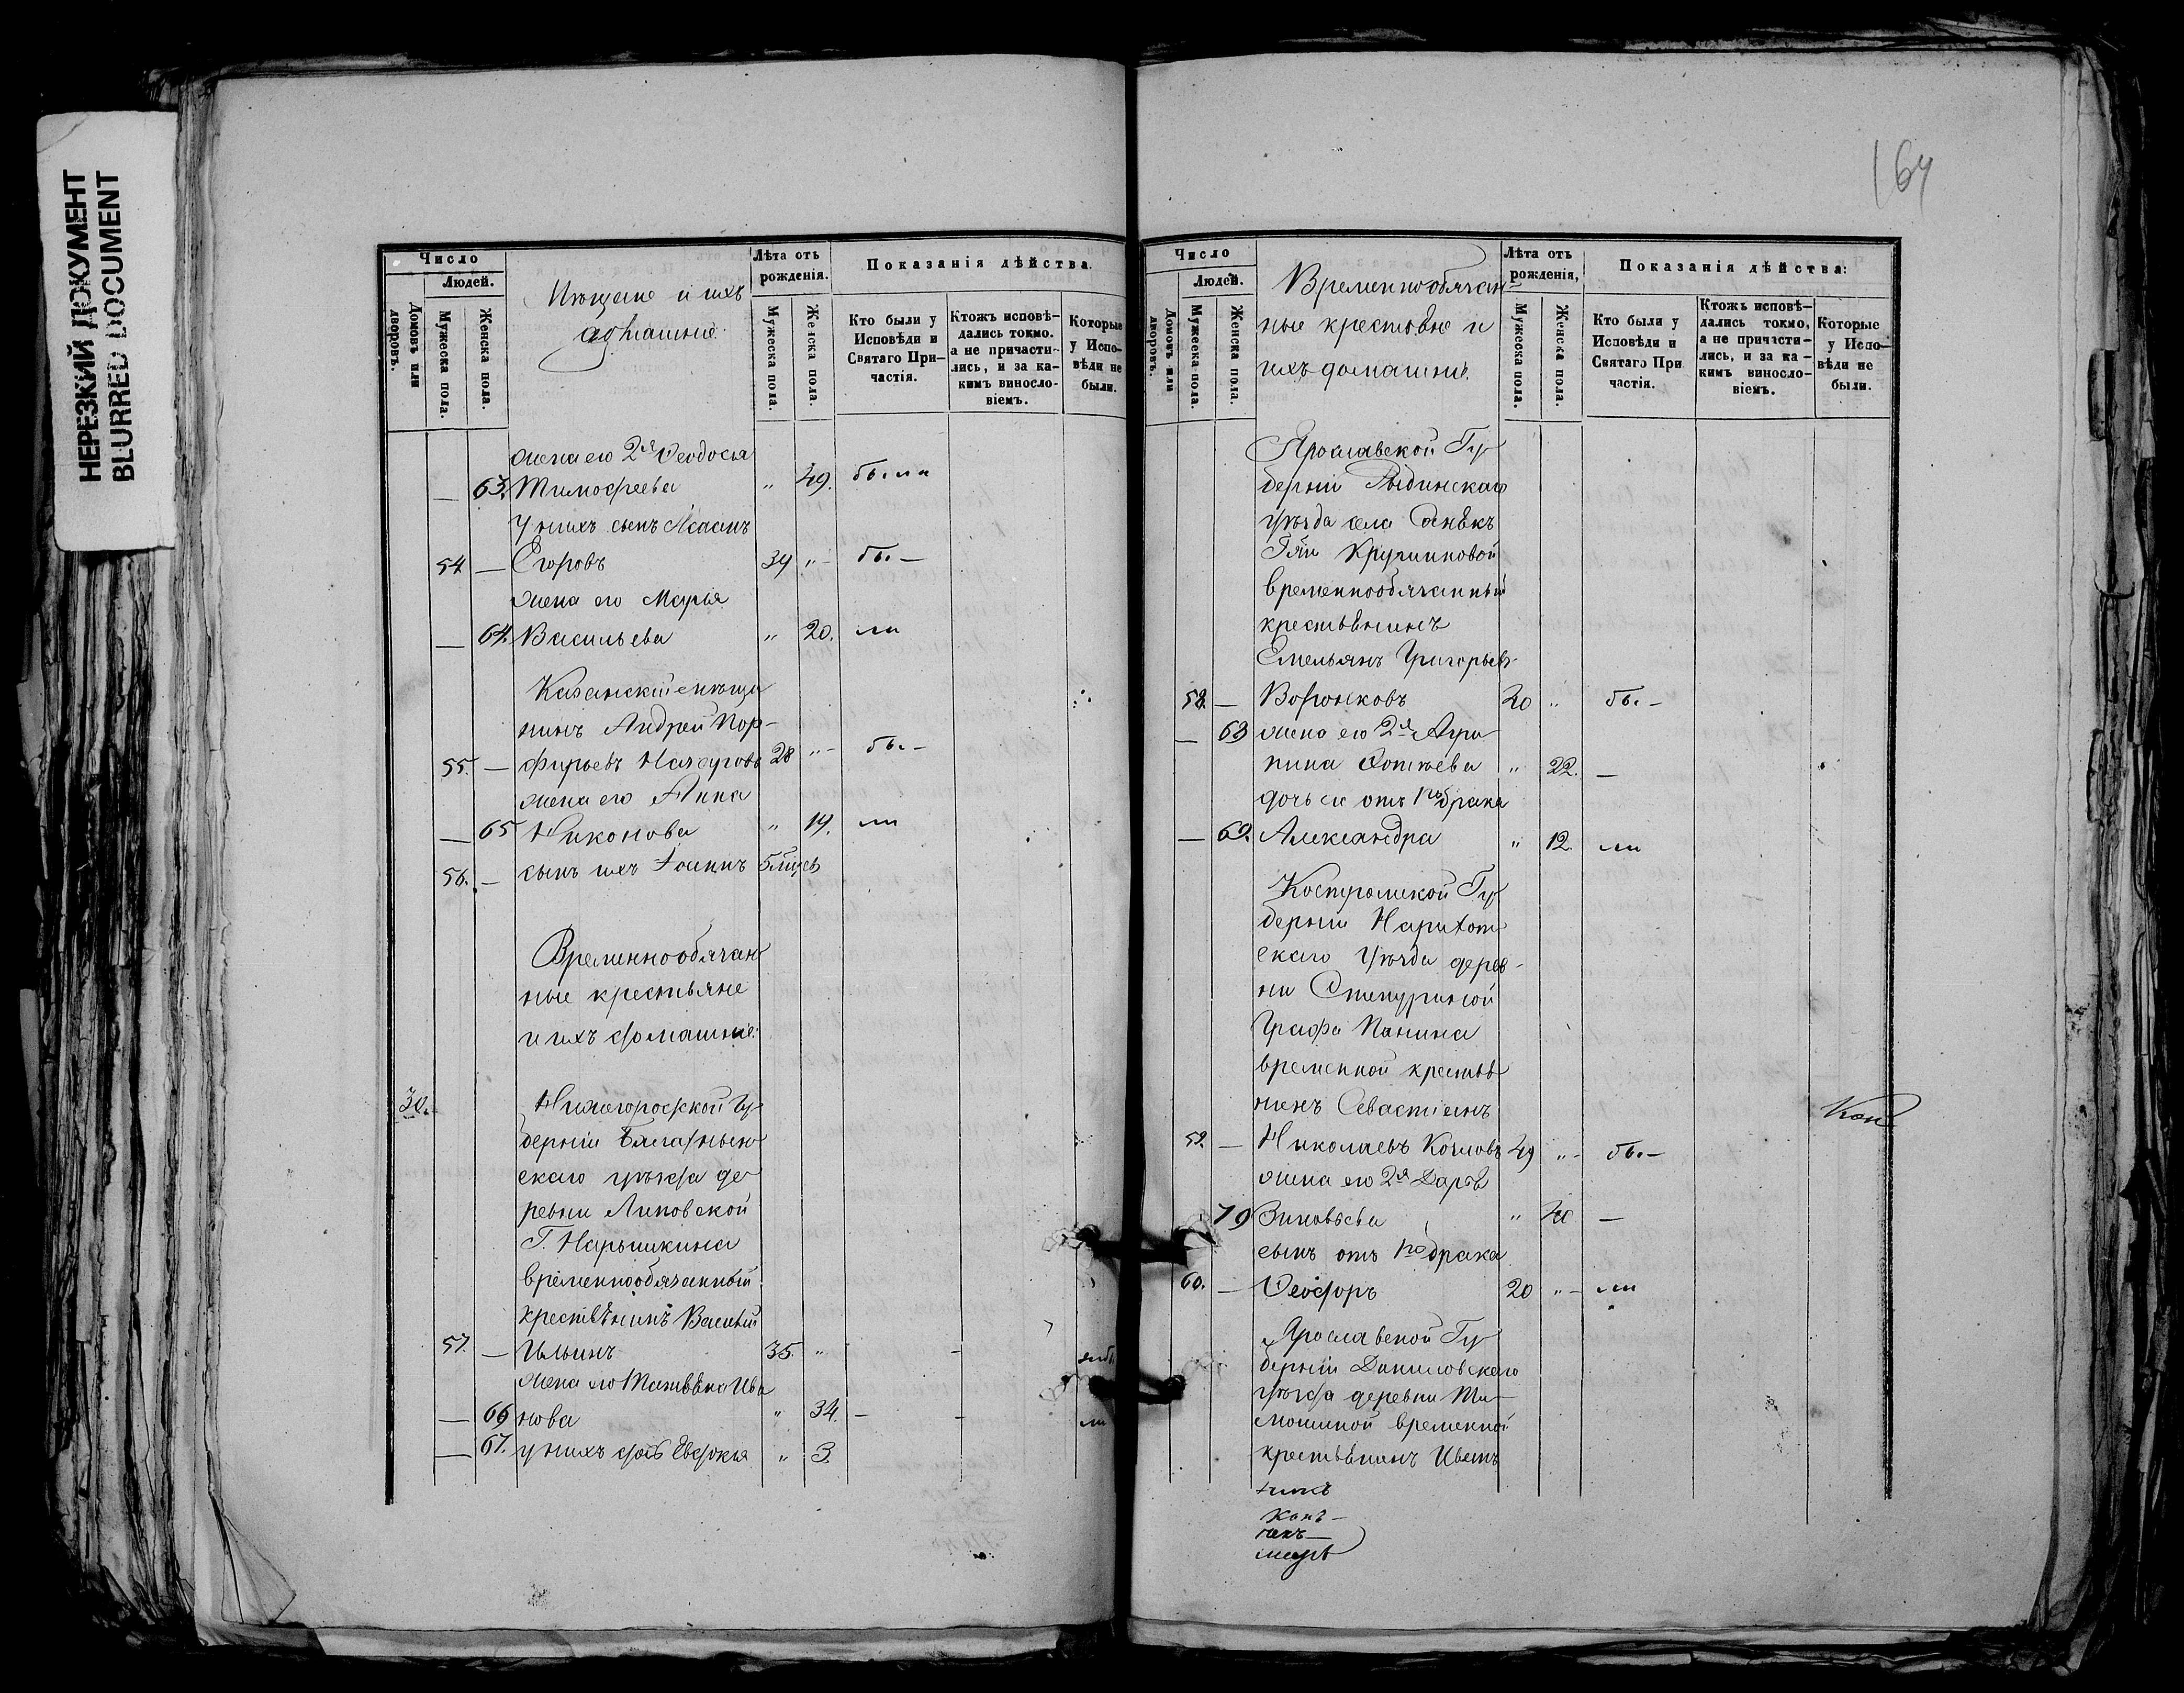 НЕРЕЗКИЙ ДОКУМЕНТ
BLURRED DOCUMENT
Число
Людей.
Домовъ или дворовъ.
Мужеска пола.
Женска пола.
Мѣщане и ихъ
домашніе.
Лѣта отъ рожденія.
Мужеска пола.
Женска пола.
Показанія дѣйства.
Кто были у Исповѣди и Святаго При-частія.
Ктожъ исповѣ-дались токмо. а не причасти-лись, и за ка-кимъ виносло-віемъ.
Которые у Испо-вѣди не были.
жена его 2я Ѳеодосья
— 63. Тимофеева " 49. были
у нихъ сынъ
54 — Егоровъ 34 " - бы. —
жена его Марья
— 64. Васильева " 20. ли
Казанскій мѣща
нинъ Андрей Пор-
55. — фирьевъ 28 " - бы. —
жена его Анна
— 65 Никонова " 19. ли
56. — сынъ ихъ Іоаннъ 5 мцевъ
Временнообязан
ные крестьяне
и ихъ домашніе.
30. Нижегородской Гу
берніи
скаго уѣзда де
ревни Липовской
Г. Нарышкина
временнообязанный
крестьянинъ Василій
57. — Ильинъ 35. " -
жена его Татьяна Ива
— 66 нова " 34. - - ли
— 67. у нихъ дочь Евдокія " 3.
164
Число
Людей.
Домовъ или дворовъ.
Мужеска пола.
Женска пола.
Временнообязан
ные крестьяне и
ихъ домашніе.
Лѣта отъ рожденія,
Мужеска пола.
Женска пола.
Показанія дѣйства:
Кто были у Исповѣди и Святаго При частія.
Ктожъ исповѣ-дались токмо, а не причасти-лись, и за ка-кимъ виносло-віемъ.
Которые у Испо-вѣди не были.
Ярославской Гу
берніи Рыбинскаго
уѣзда села
Гжи Крупениковой
временнообязанный
крестьянинъ
Емельянъ Григорьевъ
58. — Воронковъ 30 " бы. —
— 68 жена его 2я Агри
пина Фотіева " 22. —
дочь ея отъ 1го брака
— 69. Александра " 12. ли
Костромской Гу
берніи
скаго Уѣзда дерев-
ни
Графа Панина
временной крестья
нинъ Севастіанъ
59. — Николаевъ Козловъ 49 " - бы. —
жена его 2я Дарья
70 Зиновьева " —
сынъ отъ 1го брака
60. — Ѳеодоръ 20 " - ли
Ярославской Гу
берніи Даниловскаго
уѣзда деревни Ти
мошиной временной
крестьянинъ